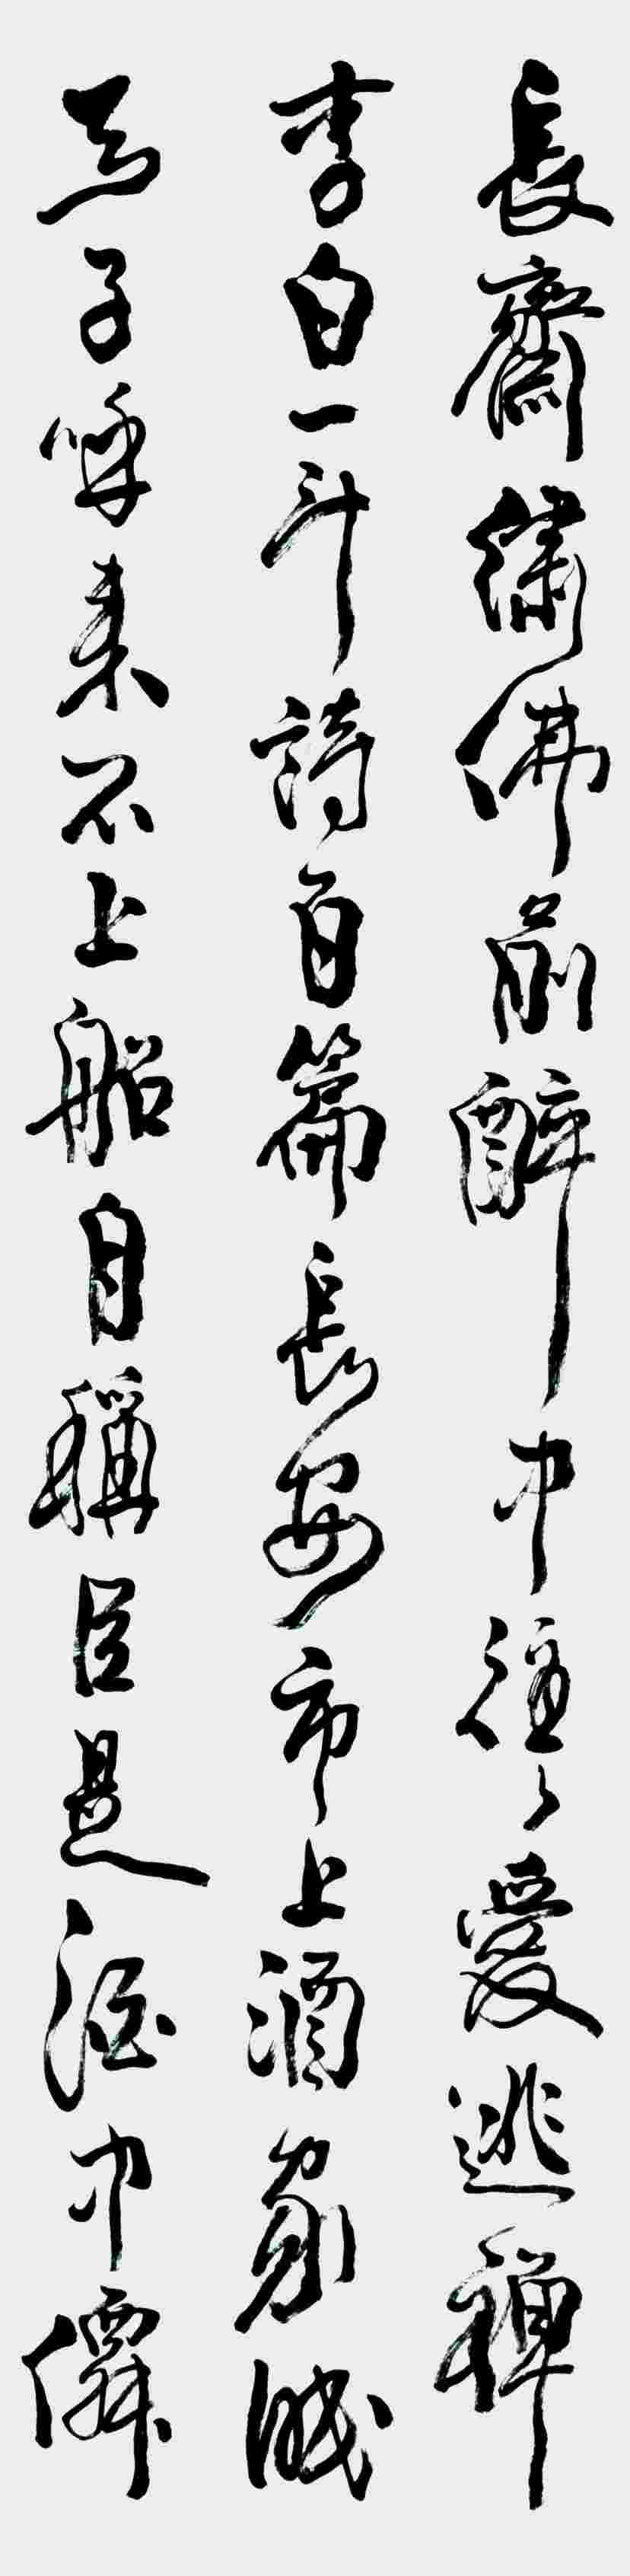 長齋繡佛前醉中往々愛逃禪
李白一斗詩百篇長安市上酒家眠
天子呼來不上船自稱臣是酒中僊